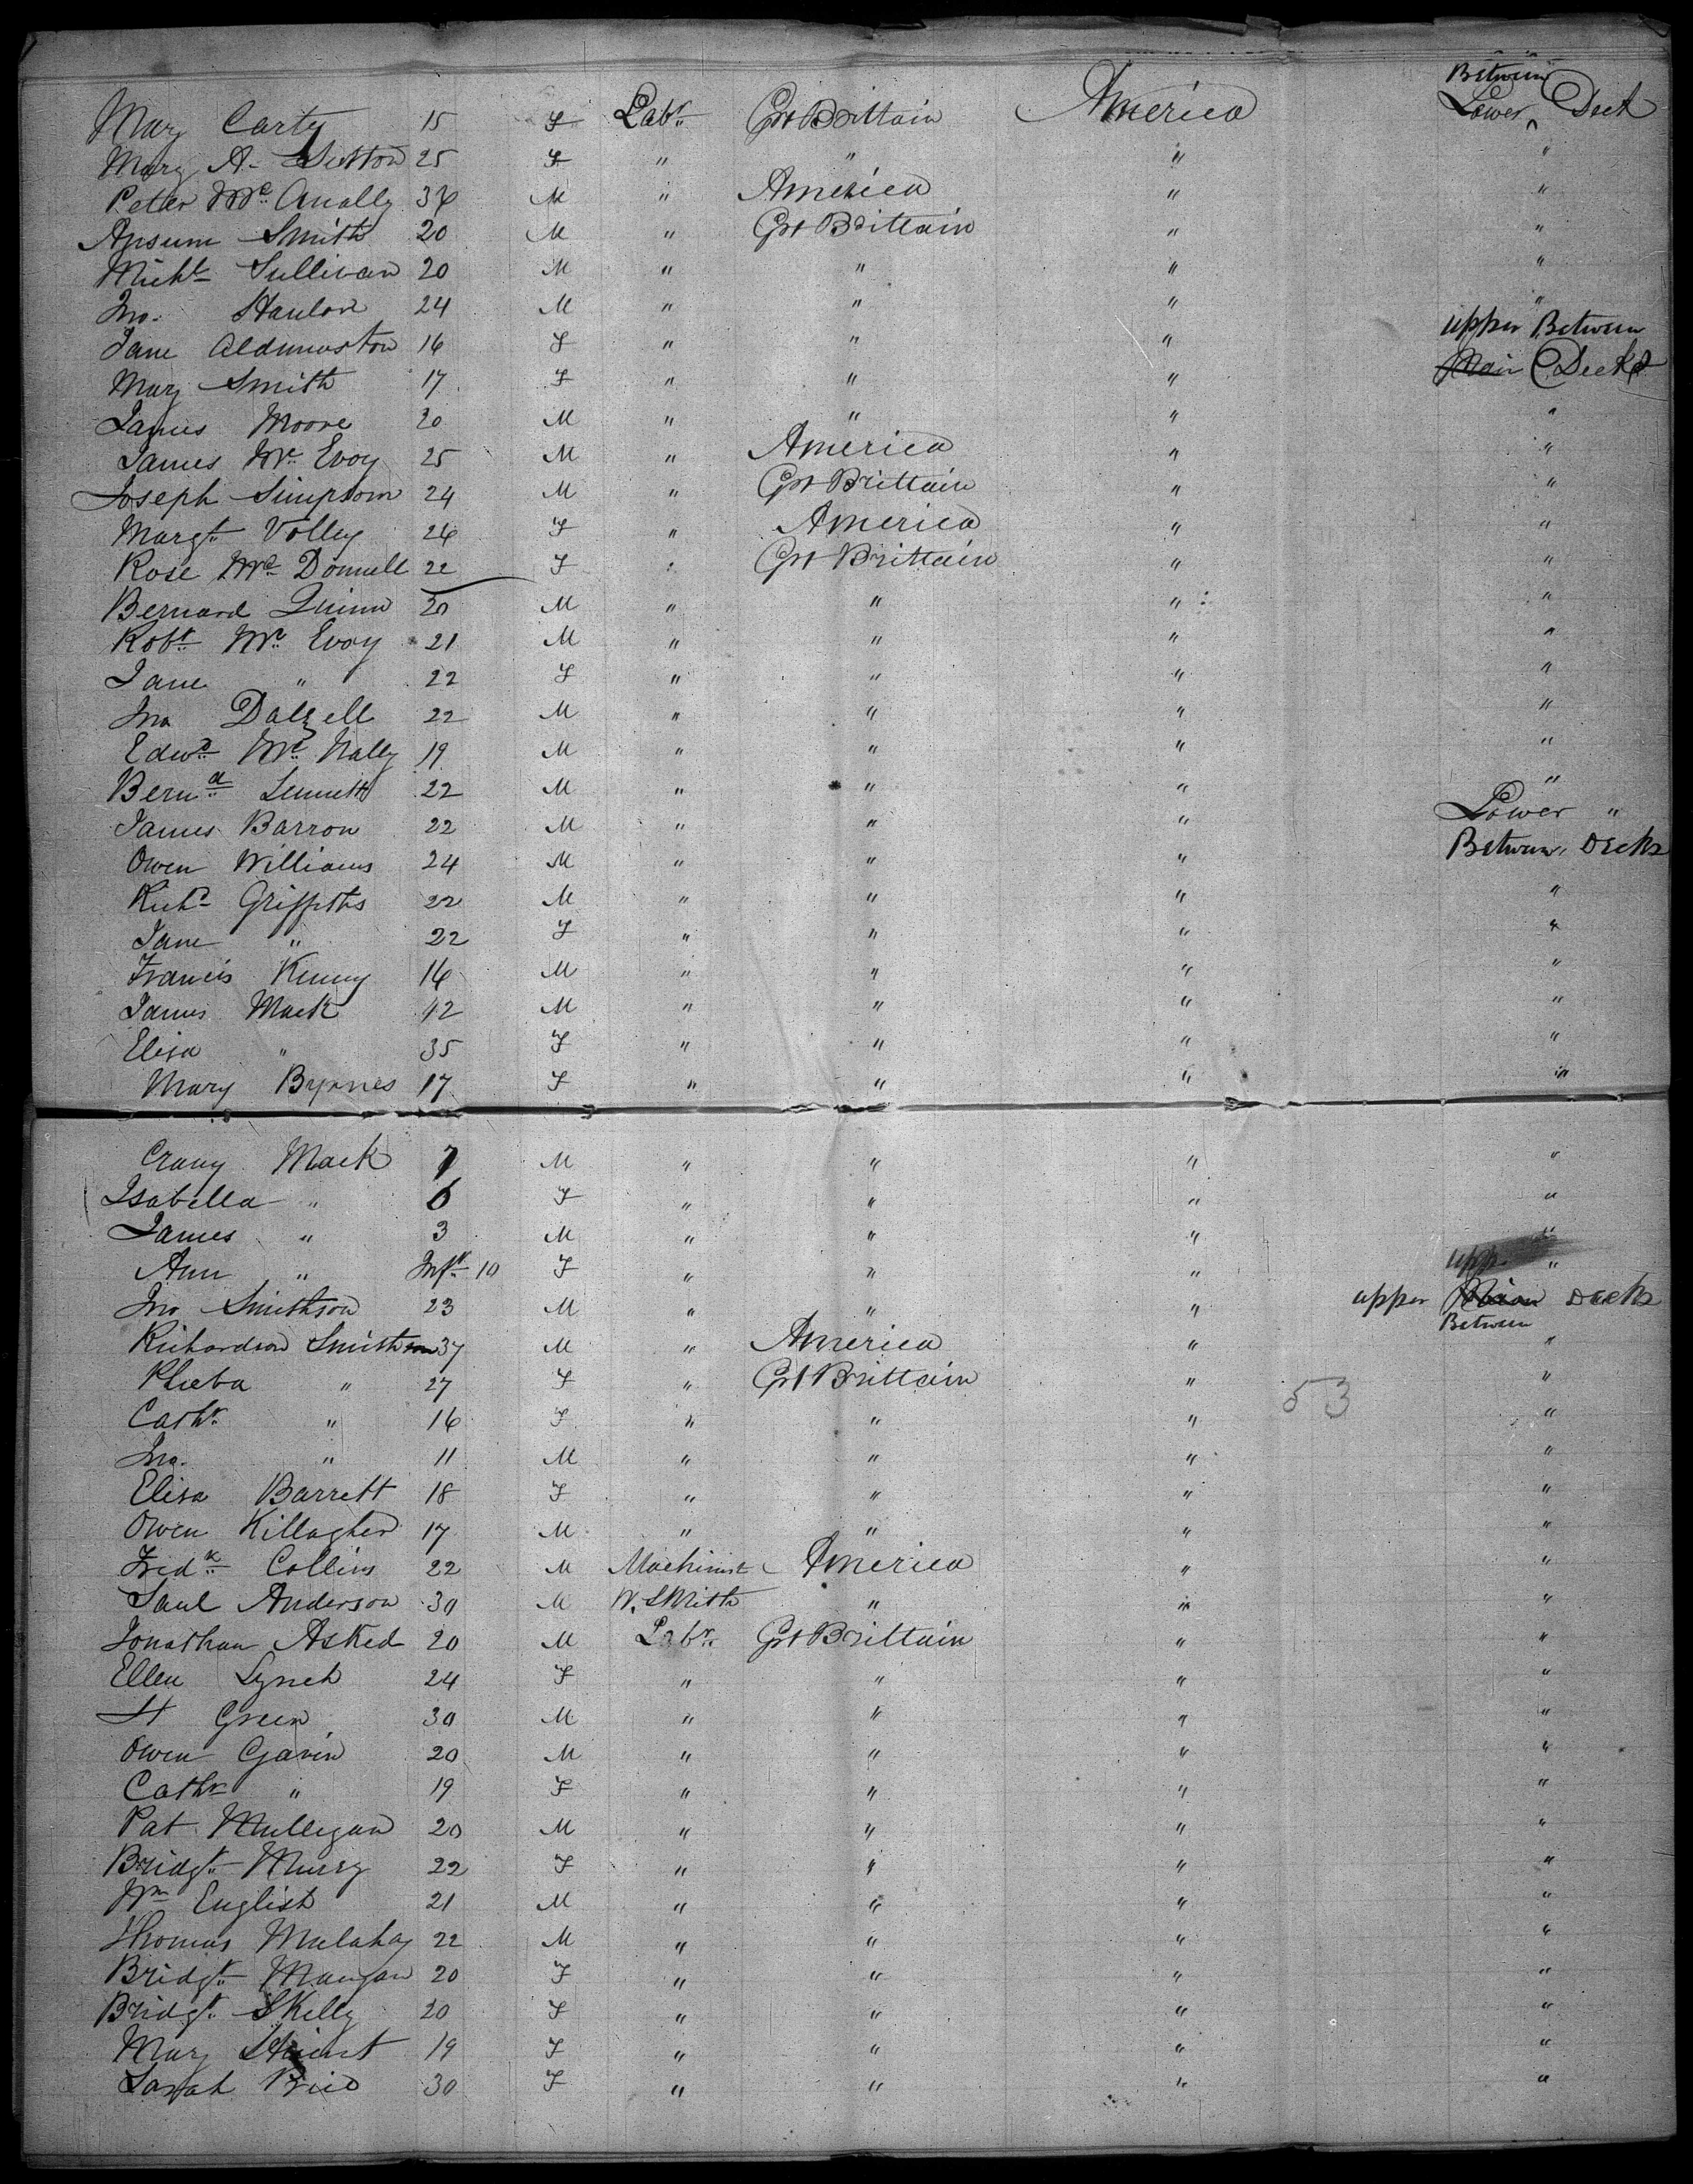 Between
Mary Carty 15 F Labr. Grt Brittain America Lower ^ Deck
Mary A. Sutton 25 F " " " "
Peter Mc Anally 36 M " America " "
Ansum Smith 20 M " Grt Brittain " "
Michl Sullivan 20 M " " " "
Jno. Hanlon 24 M " " " "
Jane 16 F " " " upper Between
Mary Smith 17 F " " " Main Decks
James Moore 20 M " " " "
James Mc Evoy 25 M " America " "
Joseph Simpson 24 M " Grt Brittain " "
Margt. Volley 26 F " America " "
Rose Mc Donnell 22 F " Grt Brittain " "
Bernard Quinn 20 M " " " "
Robt. Mc Evoy 21 M " " " "
Jane " 22 F " " " "
Jno Dalzell 22 M " " " "
Edwd. Mc Nally 19 M " " " "
Bernd. 22 M " " " "
James Barron 22 M " " " Lower "
Owen Williams 24 M " " " Between Decks
Richd Griffiths 22 M " " " "
Jane " 22 F " " " "
Francis Kenny 16 M " " " "
James Mack 42 M " " " "
Elisa " 35 F " " " "
Mary Byrnes 17 F " " " "
Mack 7 M " " " "
Isabella " 6 F " " " "
James " 3 M " " " "
Ann " Inft. 10 F " " " upp. "
Jno Smithson 23 M " " " upper Main Decks
Between
Richardson Smithson 37 M " America " "
Phoeba " 27 F " Grt Brittain " "
53
Cathr. " 16 F " " " "
Jno. " 11 M " " " "
Elisa Barrett 18 F " " " "
Owen Killagher 17 M " " " "
Fredk. Collins 22 M Machinist America " "
Saul Anderson 30 M W. Smith " " "
Jonathan Asked 20 M Labr. Grt Brittain " "
Ellen Lynch 24 F " " " "
H Green 30 M " " " "
Owen Gavin 20 M " " " "
Cathr " 19 F " " " "
Pat Mulligan 20 M " " " "
Bridgt. Murry 22 F " " " "
Wm English 21 M " " " "
Thomas Mulahy 22 M " " " "
Bridgt. Mangan 20 F " " " "
Bridgt. Skelly 20 F " " " "
Mary 19 F " " " "
Sarah 30 F " " " "